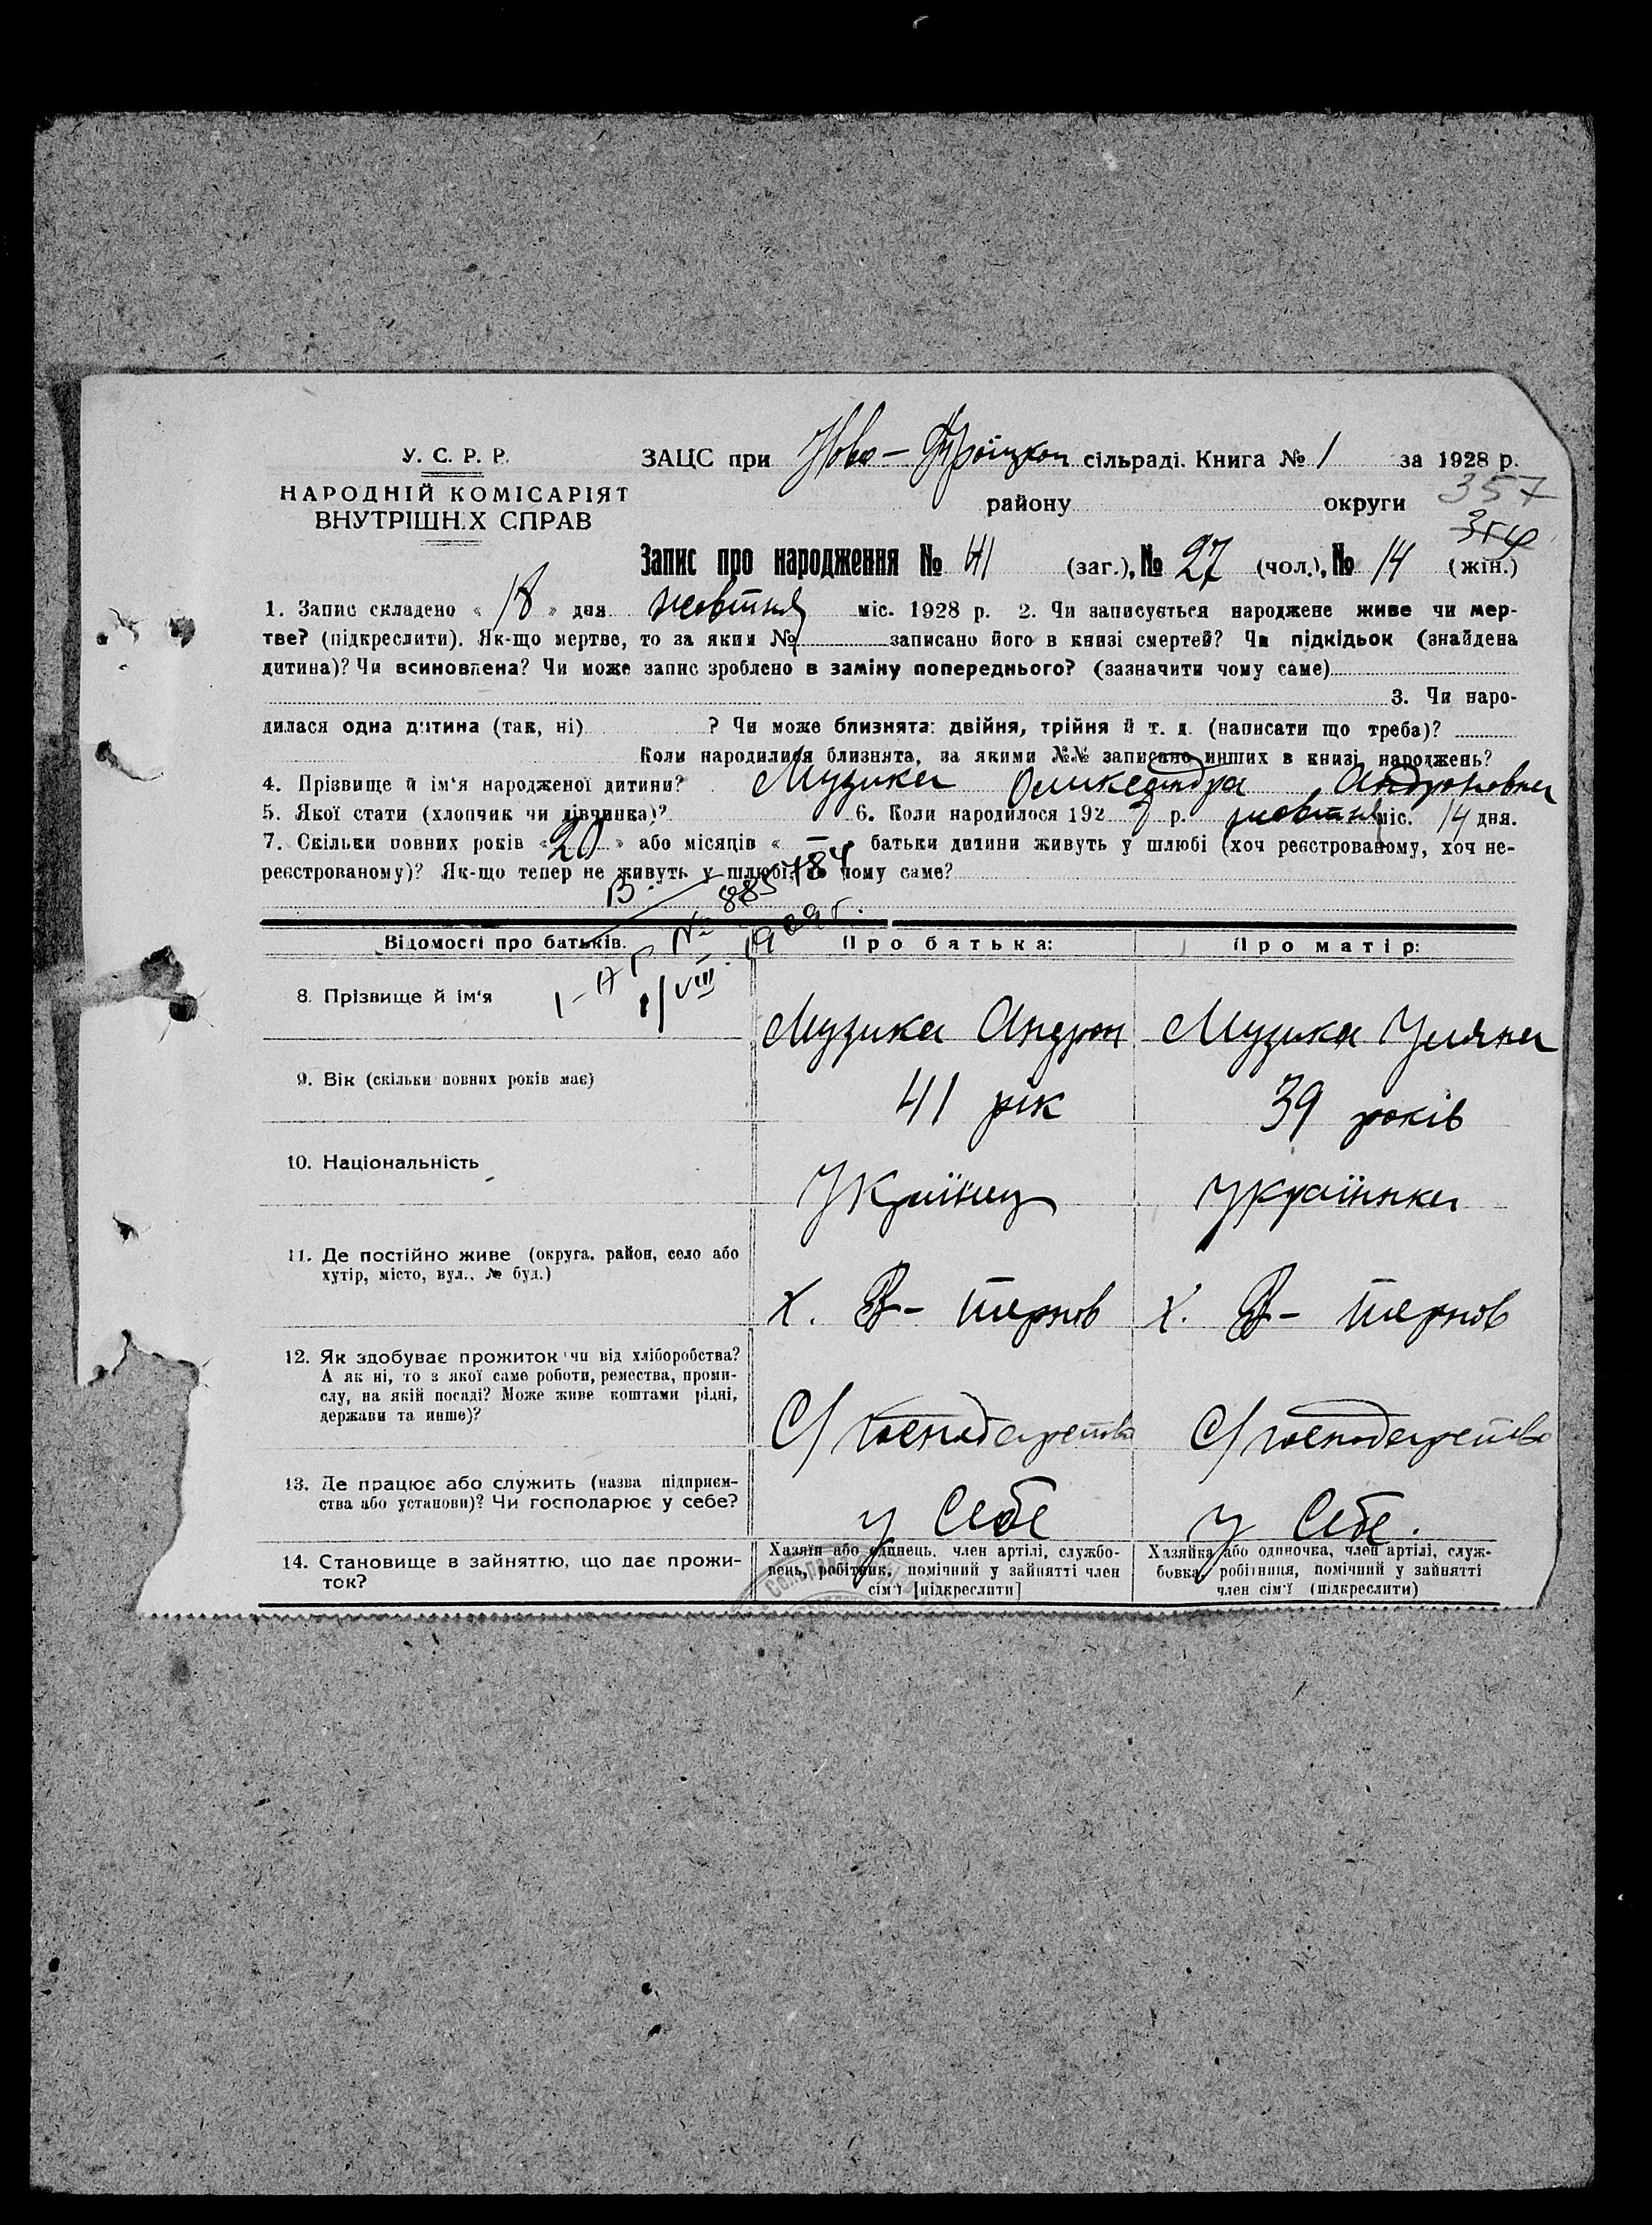 У. С. Р. Р.
НАРОДНІЙ КОМІСАРІЯТ
ВНУТРІШН.Х СПРАВ
ЗАЦС при Ново - Троїцкой сільраді. Книга № 1 за 1928 р.
району округи 357
Запис про народження № 41 (заг.), № 27 (чол.), № 14 (жін.)
1. Запис складено « 18 » дня жовтня міс. 1928 р. 2. Чи записується народжене живе чи мер-
тве? (підкреслити). Як-що мертве, то за яким № записано його в книзі смертей? Чи підкідьок (знайдена
дитина)? Чи всиновлена? Чи може запис зроблено в заміну попереднього? (зазначити чому саме)
3. Чи наро-
дилася одна дитина (так, ні) ? Чи може близнята: двійня, трійня й т. д. (написати що треба)?
Коли народилися близнята, за якими №№ записано инших в книзі народжень?
4. Прізвище й ім'я народженої дитини? Музика Олександра Андроновна
5. Якої стати (хлопчик чи дівчинка)? 6. Коли народилося 192 р. жовтня міс. 14 дня.
7. Скільки повних років « 20 » або місяців « — » батьки дитини живуть у шлюбі (хоч реєстрованому, хоч не-
реєстрованому)? Як-що тепер не живуть у шлюбі, то чому саме?
1-АР № 885784
1/VIII 1969 г.
Відомості про батьків. Про батька: Про матір:
8. Прізвище й ім'я Музика Андрон Музика Уляна
9. Вік (скільки повних років має) 41 рік 39 років
10. Національність Українец Українка
11. Де постійно живе (округа, район, село або
хутір, місто, вул., № буд.)
х. В- Тернов х. В- Тернов
12. Як здобуває прожиток чи від хліборобства?
А як ні, то з якої саме роботи, ремества, проми-
слу, на якій посаді? Може живе коштами рідні,
держави та инше)?
С/господарство С/господарство
13. Де працює або служить (назва підприєм-
ства або установи)? Чи господарює у себе?
у Себе у Себе.
14. Становище в зайняттю, що дає прожи-
ток?
Хазяїн або одинець, член артілі, службо-
вець, робітник, помічний у зайнятті член
сім'ї [підкреслити]
Хазяйка або одиночка, член артілі, служ-
бовка, робітниця, помічний у зайнятті
член сім'ї (підкреслити)